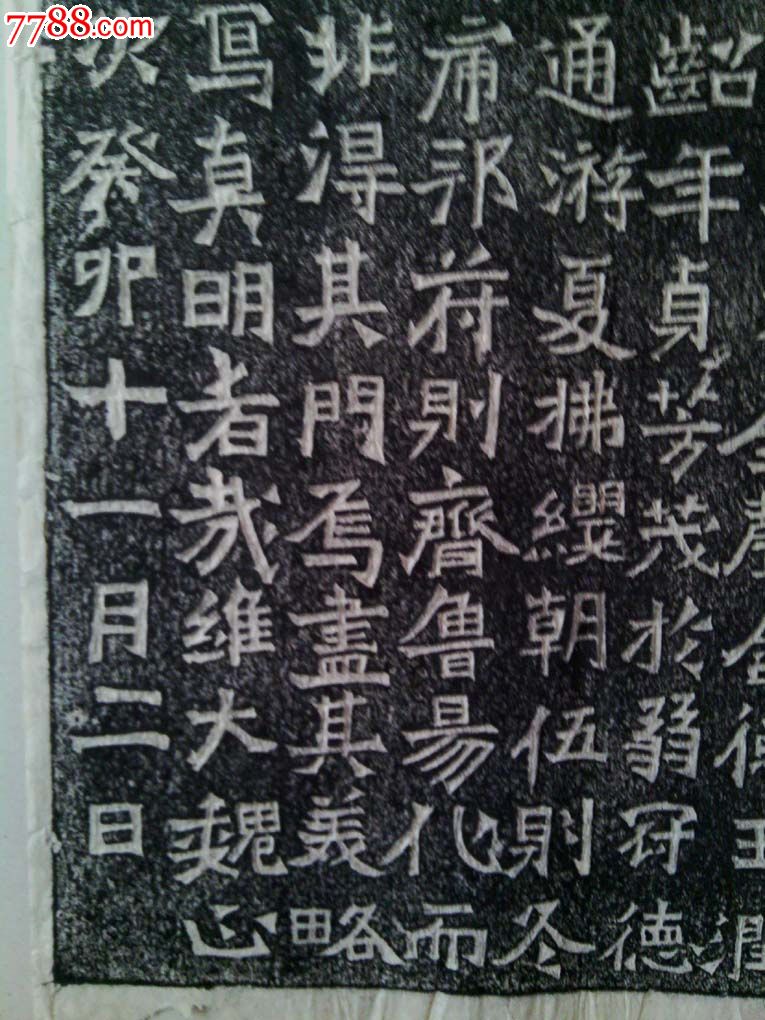 7788.com
齠年貞芳茂於弱冠德
通游夏拂纓朝伍則冬
符則齊魯易化而
非得其門焉盡其美略
寫真明者哉維大魏正
次癸卯十一月二日